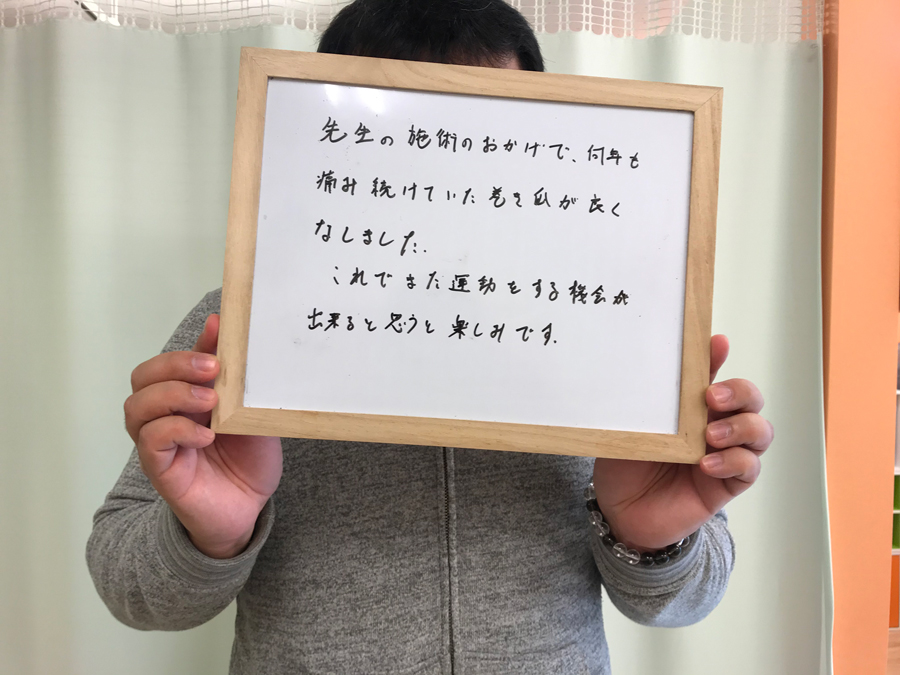 先生の施術のおかげで、何年も
痛み続けていた巻き爪が良く
なしました.
これでまた運動をする機会が
出来ると思うと楽しみです.